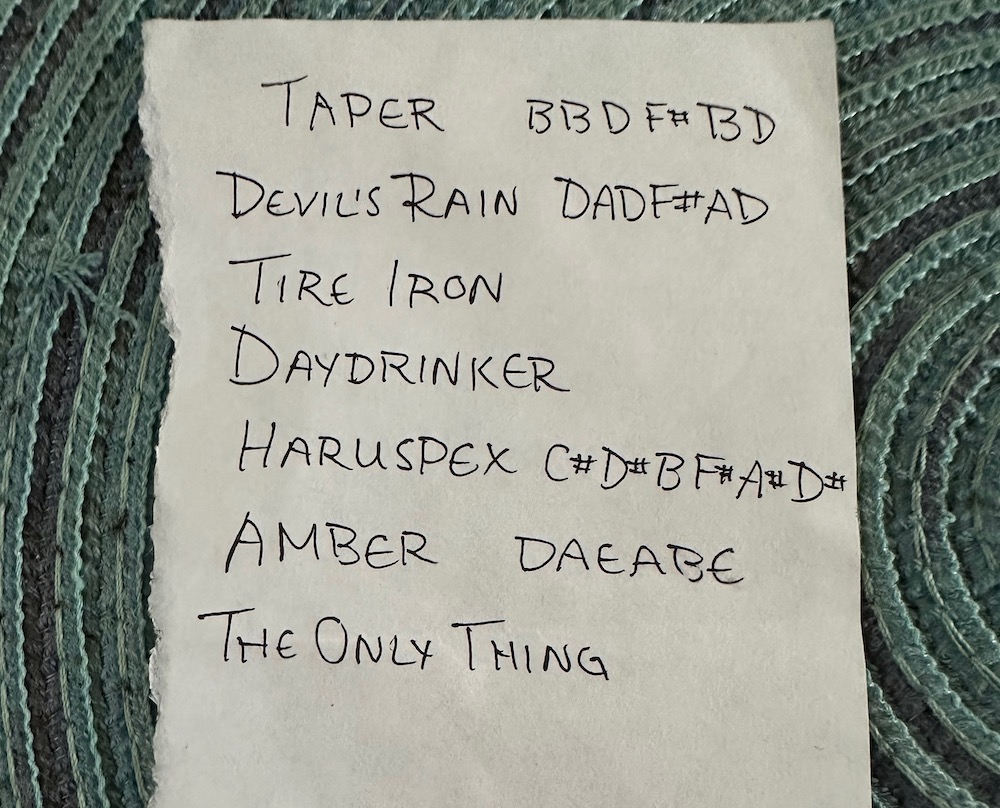 TAPER BBDF#BD
DEVIL'S RAIN DADF#AD
TIRE IRON
DAYDRINKER
HARUSPEX C#D#BF#A#D#
AMBER DAEABE
THE ONLY THING